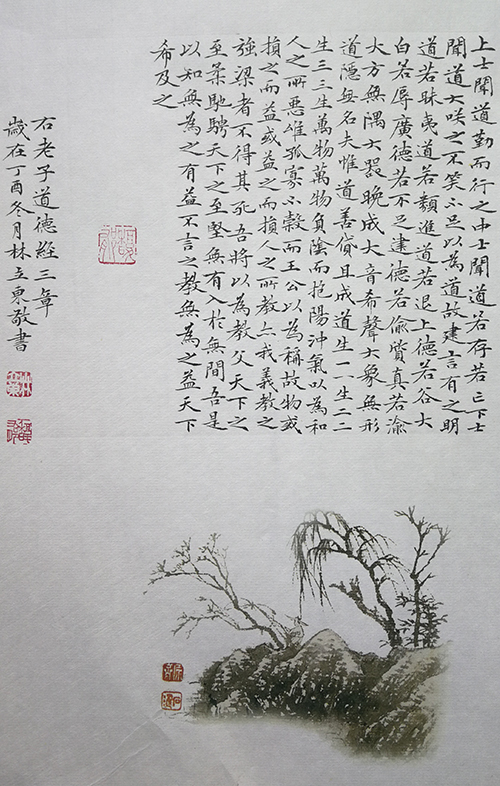 上士聞道勤而行之中士聞道若存若亡下士
聞道大咲之不笑不足以為道故建言有之明
道若昧夷道若類進道若退上德若谷大
白若辱廣德若不足建德若偷質真若渝
大方無隅大器晚成大音希聲大象無形
道隱無名夫惟道善貸且成道生一生二二
生三三生萬物萬物負陰而抱陽沖氣以為和
人之所惡雖孤寡不穀而王公以為稱故物或
損之而益或益之而損人之所教亦我義教之
強梁者不得其死吾將以為教父天下之
至柔馳騁天下之至堅無有入於無間吾是
以知無為之有益不言之教無為之益天下
希及之
右老子道德經三章
歲在丁酉冬月林立東敬書